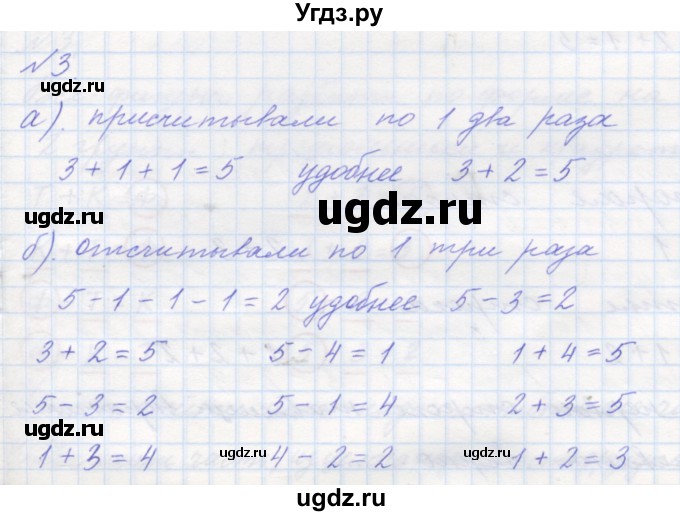 Угдз.ру
№3
ugdz.ru
а). присчитывали по 1 два раза
3 + 1 + 1 = 5 удобнее 3 + 2 = 5
ugdz.ru ugdz.ru
б). отсчитывали по 1 три раза
5 - 1 - 1 - 1 = 2 удобнее 5 - 3 = 2
ugdz.ru
3 + 2 = 5 5 - 4 = 1 1 + 4 = 5
5 - 3 = 2 5 - 1 = 4 2 + 3 = 5
ugdz.ru
1 + 3 = 4 4 - 2 = 2 1 + 2 = 3
ugdz.ru ugdz.ru
ugdz.ru